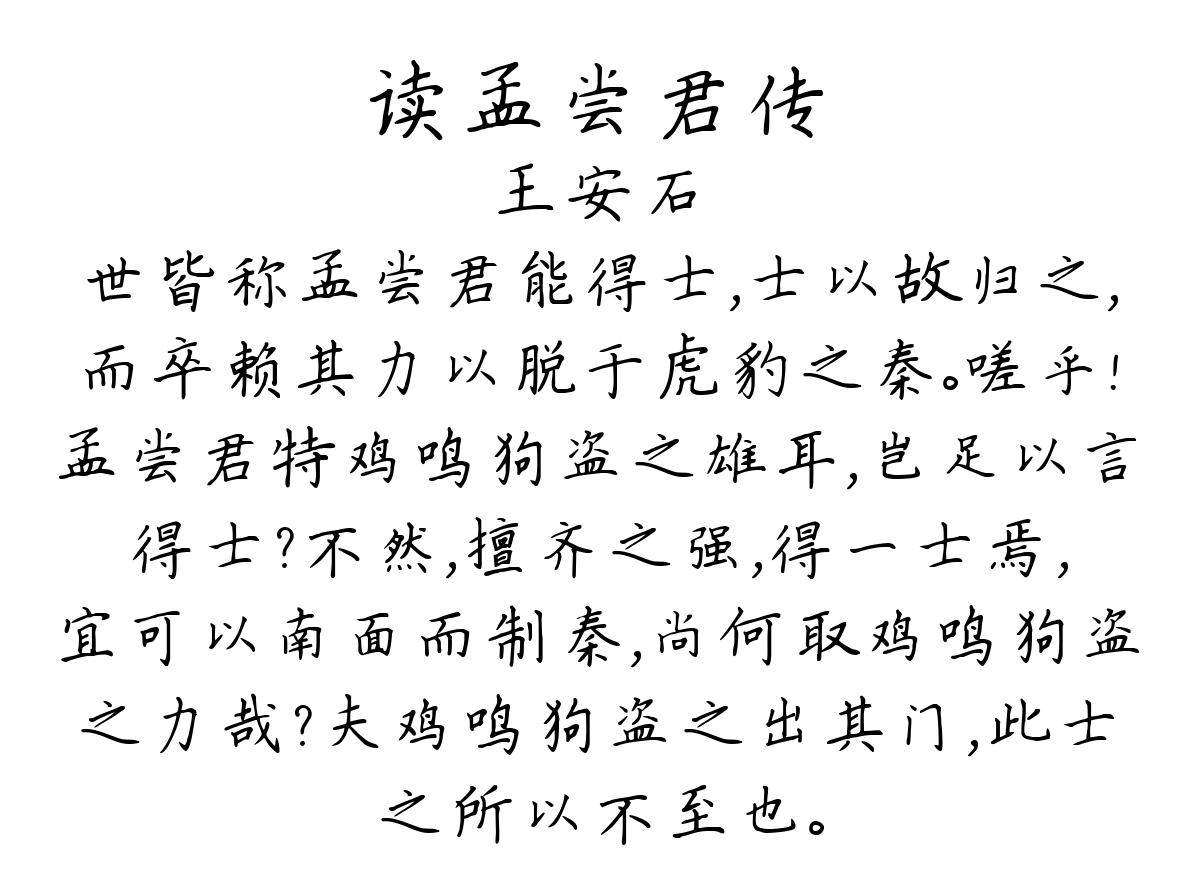 读孟尝君传
王安石
世皆称孟尝君能得士,士以故归之,
而卒赖其力以脱于虎豹之秦。嗟乎!
孟尝君特鸡鸣狗盗之雄耳,岂足以言
得士?不然,擅齐之强,得一士焉,
宜可以南面而制秦,尚何取鸡鸣狗盗
之力哉?夫鸡鸣狗盗之出其门,此士
之所以不至也。